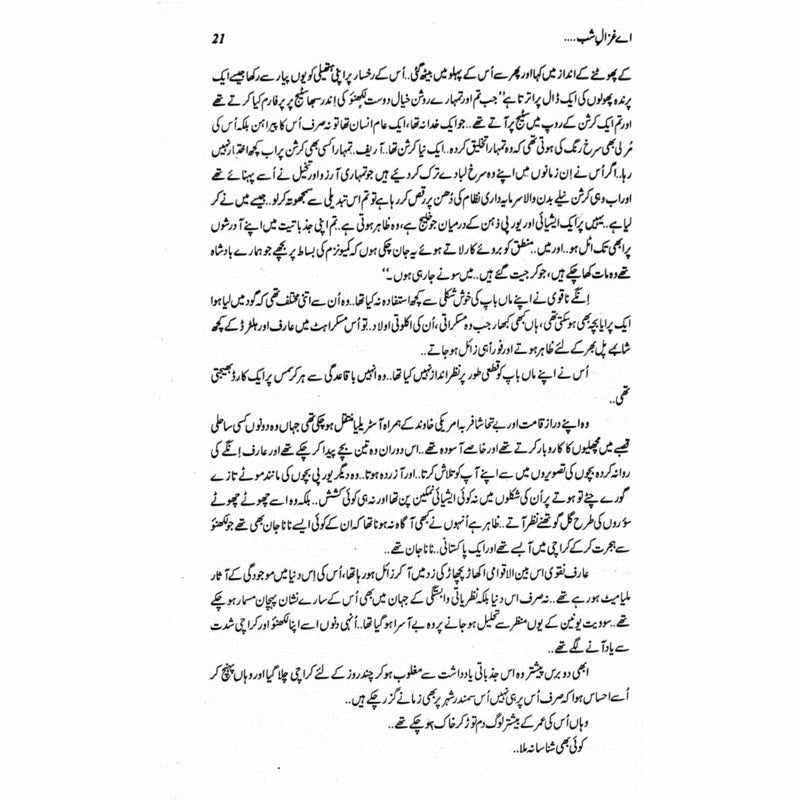 اے غزالِ شب.... 21
کے پھوٹنے کے انداز میں کہا اور پھر سے اُس کے پہلو میں بیٹھ گئی.. اُس کے رخسار پر اپنی ہتھیلی کو یوں پیار سے رکھا جیسے ایک
پرندہ پھولوں کی ایک ڈال پر اترتا ہے ”جب تم اور تمہارے روشن خیال دوست لکھنؤ کی اِندر سبھا سٹیج پر پرفارم کیا کرتے تھے
اور تم ایک کرشن کے روپ میں سٹیج پر آتے تھے.. جو ایک خدا نہ تھا، ایک عام انسان تھا تو نہ صرف اُس کا پیراہن بلکہ اُس کی
مُرلی بھی سرخ رنگ کی ہوتی تھی کہ وہ تمہارا تخلیق کردہ.. ایک نیا کرشن تھا.. آریف.. تمہارا کسی بھی کرشن پر اب کچھ اختیار نہیں
رہا.. اگر اُس نے اِن زمانوں میں اپنے وہ سرخ لبادے ترک کر دیئے ہیں جو تمہاری آرزو اور تخیل نے اُسے پہنائے تھے
اور اب وہی کرشن نیلے بدن والا سرمایہ داری نظام کی دُھن پر رقص کر رہا ہے تو تم اس تبدیلی سے سمجھوتہ کر لو.. جیسے میں نے کر
لیا ہے.. یہیں پر ایک ایشیائی اور یورپی ذہن کے درمیان جو خلیج ہے، وہ ظاہر ہوتی ہے.. تم اپنی جذباتیت میں اپنے آدرشوں
پر ابھی تک اٹل ہو.. اور میں.. منطق کو بروئے کار لاتے ہوئے یہ جان چکی ہوں کہ کمیونزم کی بساط پر بچھے جو ہمارے بادشاہ
تھے وہ مات کھا چکے ہیں، جو کر جیت گئے ہیں.. میں سونے جا رہی ہوں۔“
اِنگے ناقوی نے اپنے ماں باپ کی خوش شکلی سے کچھ استفادہ نہ کیا تھا.. وہ اُن سے اتنی مختلف تھی کہ گود میں لیا ہوا
ایک پرایا بچہ بھی ہو سکتی تھی، ہاں کبھی کبھار جب وہ مسکراتی، اُن کی اکلوتی اولاد.. تو اُس مسکراہٹ میں عارف اور ہلٹرڈ کے کچھ
شائبے پل بھر کے لئے ظاہر ہوتے اور فوراً ہی زائل ہو جاتے..
اُس نے اپنے ماں باپ کو قطعی طور پر نظر انداز نہیں کیا تھا.. وہ انہیں باقاعدگی سے ہر کرسمس پر ایک کارڈ بھیجتی
تھی..
وہ اپنے دراز قامت اور بے تحاشا فربہ امریکی خاوند کے ہمراہ آسٹریلیا منتقل ہو چکی تھی جہاں وہ دونوں کسی ساحلی
قصبے میں مچھلیوں کا کاروبار کرتے تھے اور خاصے آسودہ تھے.. اس دوران وہ تین بچے پیدا کر چکے تھے اور عارف اِنگے کی
روانہ کردہ بچوں کی تصویروں میں سے اپنے آپ کو تلاش کرتا.. اور آزردہ ہوتا.. وہ دیگر یورپی بچوں کی مانند موٹے تازے
گورے چٹے تو ہوتے پر اُن کی شکلوں میں نہ کوئی ایشیائی نمکین پن تھا اور نہ ہی کوئی کشش.. بلکہ وہ اسے چھوٹے چھوٹے
سؤروں کی طرح گل گوتھنے نظر آتے.. ظاہر ہے اُنہوں نے کبھی آگاہ نہ ہونا تھا کہ ان کے کوئی ایسے نانا جان بھی تھے جو لکھنؤ
سے ہجرت کر کے کراچی میں آبسے تھے اور ایک پاکستانی.. نانا جان تھے..
عارف نقوی اس بین الاقوامی اکھاڑ پچھاڑ کی زد میں آ کر زائل ہو رہا تھا، اُس کی اِس دنیا میں موجودگی کے آثار
ملیامیٹ ہو رہے تھے.. نہ صرف اس دنیا بلکہ نظریاتی وابستگی کے جہان میں بھی اُس کے سارے نشان پہچان مسمار ہو چکے
تھے.. سوویت یونین کے یوں منظر سے تحلیل ہو جانے پر وہ بے آسرا ہو گیا تھا.. اُنہی دنوں اسے اپنا لکھنؤ اور کراچی شدت
سے یاد آنے لگے تھے..
ابھی دو برس پیشتر وہ اس جذباتی یادداشت سے مغلوب ہو کر چند روز کے لئے کراچی چلا گیا اور وہاں پہنچ کر
اُسے احساس ہوا کہ صرف اُس پر ہی نہیں اُس سمندر شہر پر بھی زمانے گزر چکے ہیں..
وہاں اُس کی عمر کے بیشتر لوگ دم توڑ کر خاک ہو چکے تھے..
کوئی بھی شناسا نہ ملا..